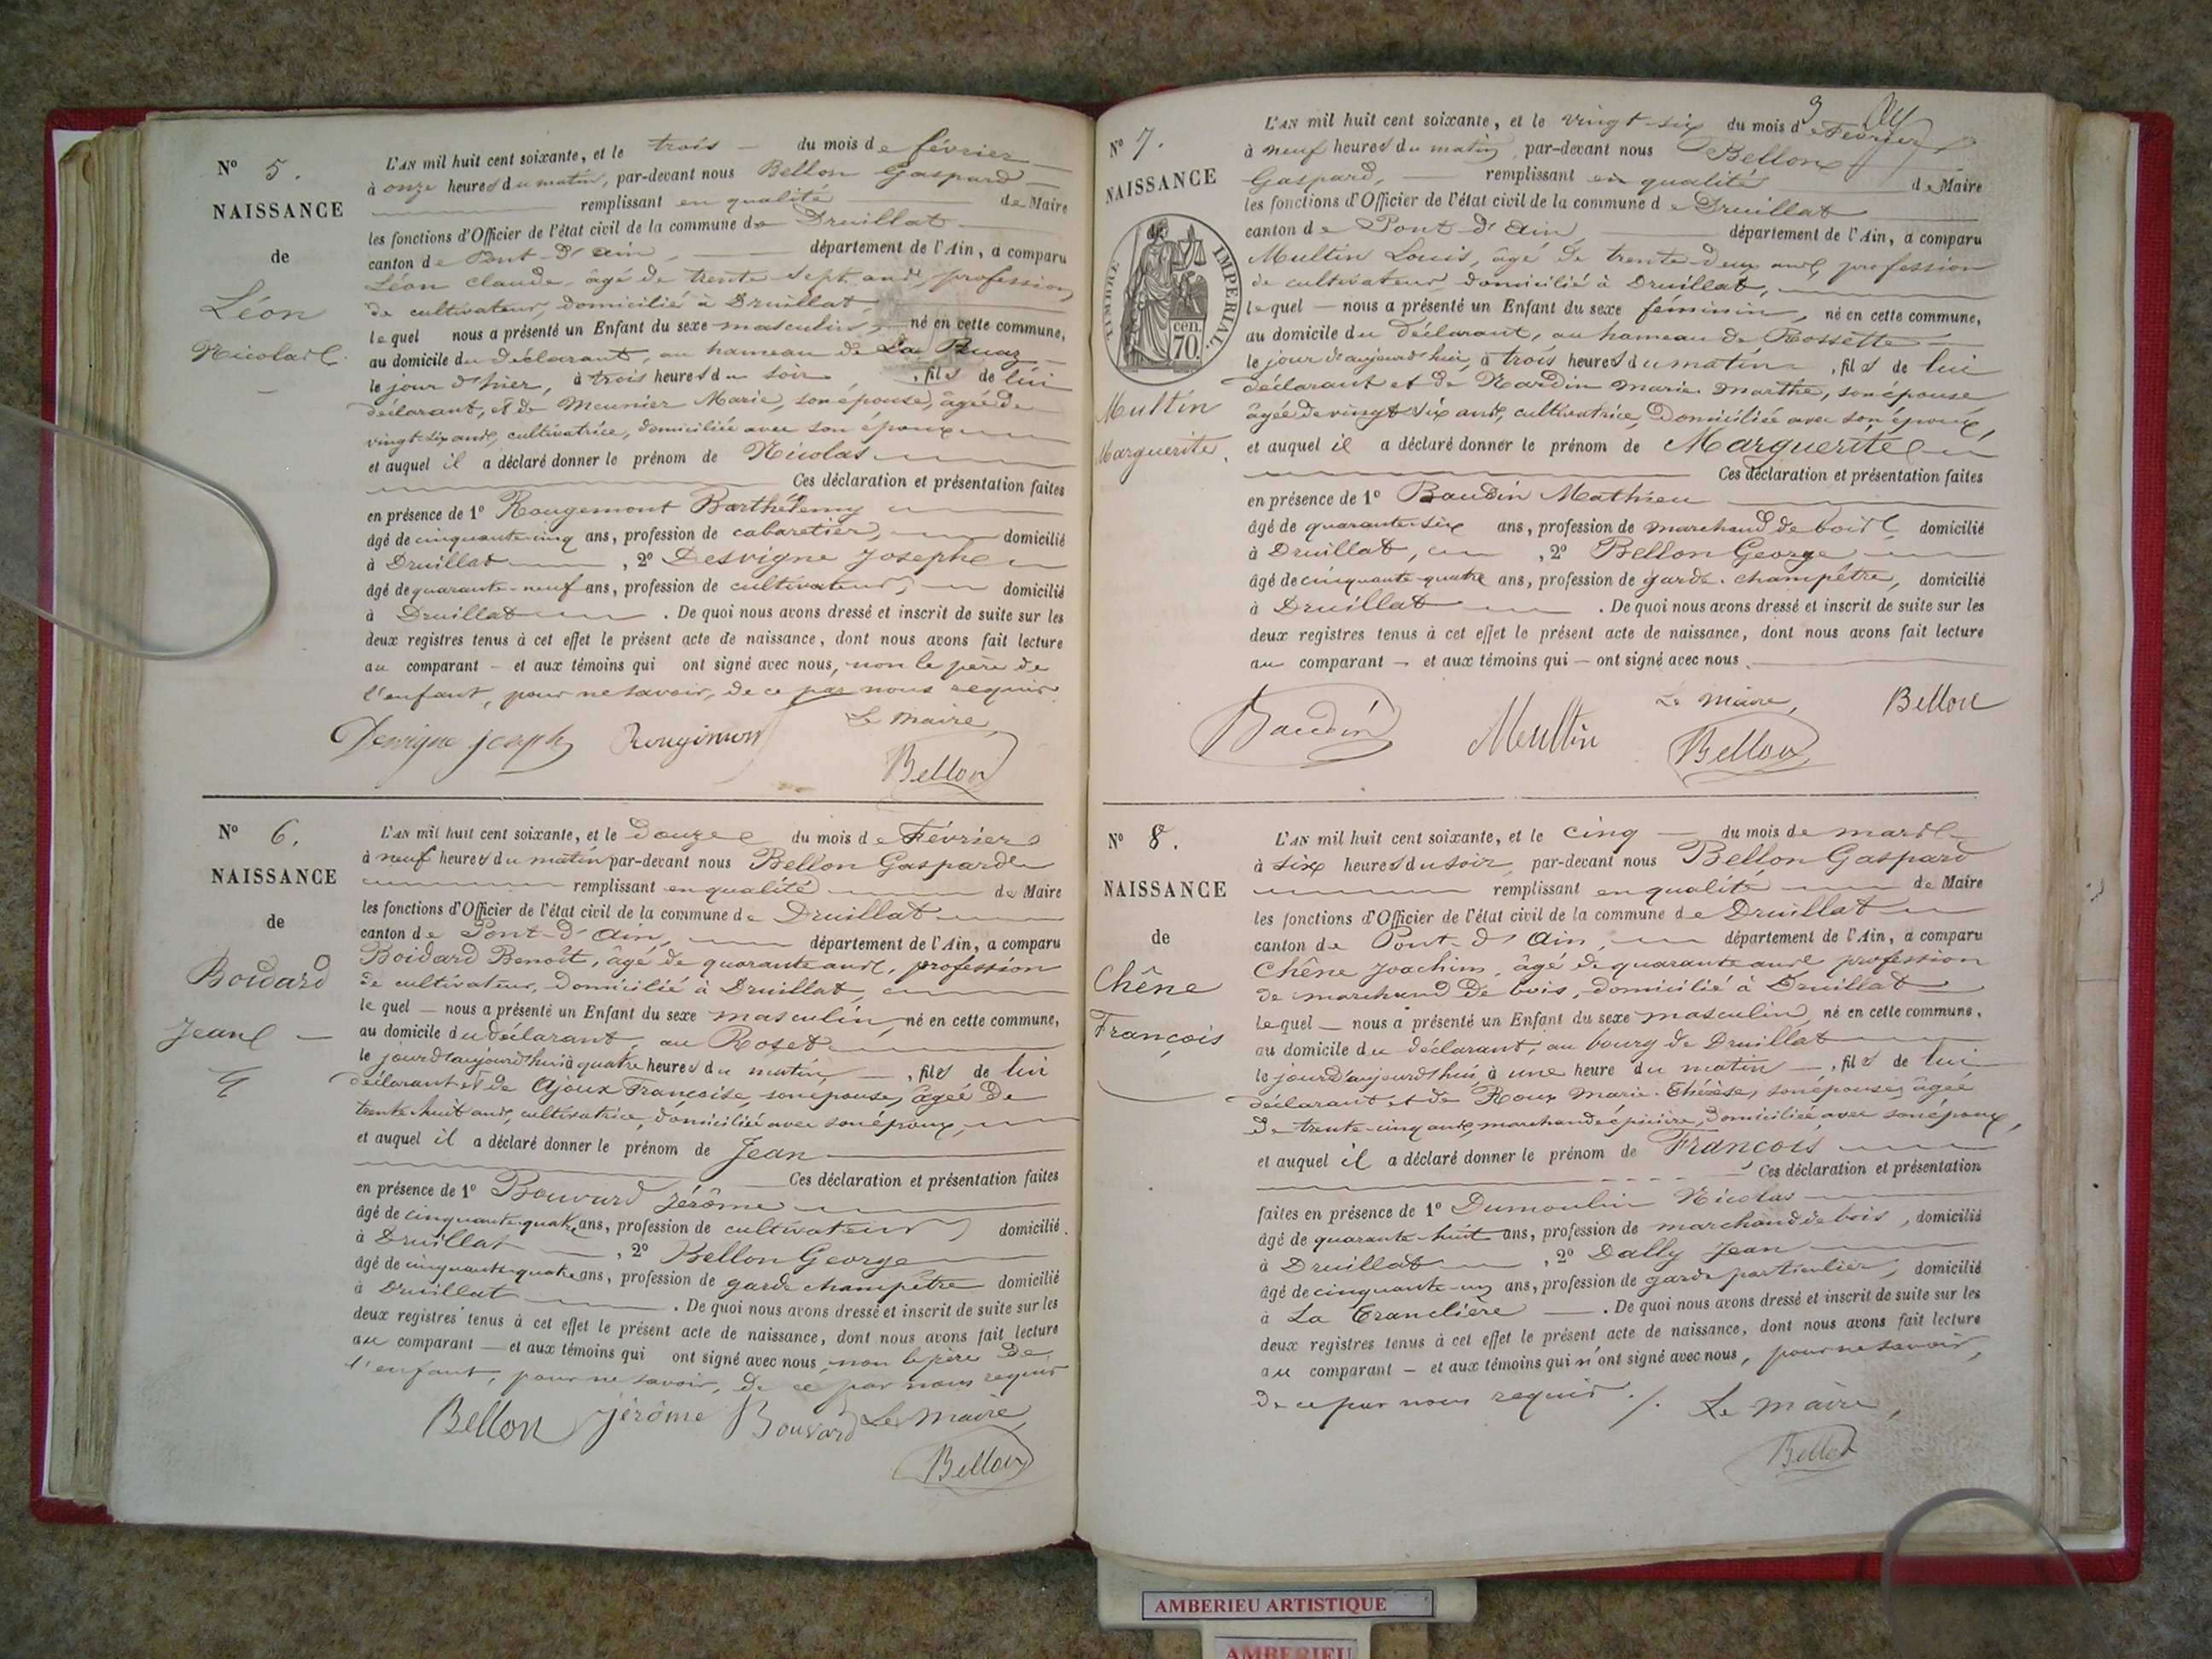 N° 5.
NAISSANCE
de
Léon
Nicolas
L'AN mil huit cent soixante, et le trois du mois de février
à onze heures du matin, par-devant nous Bellon Gaspard
remplissant en qualité de Maire
les fonctions d'Officier de l'état civil de la commune de Druillat
canton de Pont-d'Ain, département de l'Ain, a comparu
Léon claude, âgé de trente sept ans, profession
de cultivateur, domicilié à Druillat,
lequel nous a présenté un Enfant du sexe masculin, né en cette commune,
au domicile du déclarant, au hameau de La Ruaz
le jour d'hier, à trois heures du soir, fils de lui
déclarant, et de Meunier Marie, son épouse, âgée de
vingt-six ans, cultivatrice, domiciliée avec son époux
et auquel il a déclaré donner le prénom de Nicolas
Ces déclaration et présentation faites
en présence de 1° Rougemont Barthélemy
âgé de cinquante-cinq ans, profession de cabaretier, domicilié
à Druillat, 2° Desvigne Joseph
âgé de quarante-neuf ans, profession de cultivateur, domicilié
à Druillat. De quoi nous avons dressé et inscrit de suite sur les
deux registres tenus à cet effet le présent acte de naissance, dont nous avons fait lecture
au comparant – et aux témoins qui ont signé avec nous, non le père de
l'enfant, pour ne savoir, de ce par nous requis.
Le Maire,
Desvigne joseph Rougimon Bellon
N° 6.
NAISSANCE
de
Boidard
Jean
L'AN mil huit cent soixante, et le Douze du mois de Février
à neuf heures du matin par-devant nous Bellon Gaspard
remplissant en qualité de Maire
les fonctions d'Officier de l'état civil de la commune de Druillat
canton de Pont-d'Ain, département de l'Ain, a comparu
Boidard Benoît, âgé de quarante ans, profession
de cultivateur, domicilié à Druillat,
lequel – nous a présenté un Enfant du sexe masculin, né en cette commune,
au domicile du déclarant, au Roset
le jour d'aujourd'hui à quatre heures du matin, fils de lui
déclarant et de Ajoux Françoise, son épouse, âgée de
trente-huit ans, cultivatrice, domiciliée avec son époux,
et auquel il a déclaré donner le prénom de Jean
Ces déclaration et présentation faites
en présence de 1° Bouvard Jérôme
âgé de cinquante-quatre ans, profession de cultivateur, domicilié
à Druillat, 2° Bellon George
âgé de cinquante-quatre ans, profession de garde champêtre domicilié
à Druillat. De quoi nous avons dressé et inscrit de suite sur les
deux registres tenus à cet effet le présent acte de naissance, dont nous avons fait lecture
au comparant – et aux témoins qui ont signé avec nous, non le père de
l'enfant, pour ne savoir, de ce par nous requis
Bellon jérôme Bouvard Le Maire,
Bellon
3
N° 7.
NAISSANCE
TIMBRE IMPERIAL
70 cen.
Multin
Marguerite.
L'AN mil huit cent soixante, et le vingt-six du mois de Février
à neuf heures du matin, par-devant nous Bellon
Gaspard, remplissant en qualité de Maire
les fonctions d'Officier de l'état civil de la commune de Druillat
canton de Pont-d'Ain, département de l'Ain, a comparu
Multin Louis, âgé de trente-deux ans, profession
de cultivateur domicilié à Druillat,
lequel – nous a présenté un Enfant du sexe féminin, né en cette commune,
au domicile du déclarant, au hameau de Rossette
le jour d'aujourd'hui, à trois heures du matin, fils de lui
déclarant et de Nardin Marie Marthe, son épouse
âgée de vingt-six ans, cultivatrice, Domiciliée avec son époux,
et auquel il a déclaré donner le prénom de Marguerite
Ces déclaration et présentation faites
en présence de 1° Baudin Mathieu
âgé de quarante-six ans, profession de marchand de bois domicilié
à Druillat, 2° Bellon George
âgé de cinquante-quatre ans, profession de garde-champêtre, domicilié
à Druillat. De quoi nous avons dressé et inscrit de suite sur les
deux registres tenus à cet effet le présent acte de naissance, dont nous avons fait lecture
au comparant – et aux témoins qui – ont signé avec nous.
Le Maire, Bellon
Baudin Multin Bellon
N° 8.
NAISSANCE
de
Chêne
François
L'AN mil huit cent soixante, et le cinq du mois de mars
à six heures du soir, par-devant nous Bellon Gaspard
remplissant en qualité de Maire
les fonctions d'Officier de l'état civil de la commune de Druillat
canton de Pont-d'Ain, département de l'Ain, a comparu
Chêne Joachim, âgé de quarante ans profession
de marchand de bois, domicilié à Druillat
lequel – nous a présenté un Enfant du sexe masculin, né en cette commune,
au domicile du déclarant, au bourg de Druillat
le jour d'aujourd'hui, à une heure du matin –, fils de lui
déclarant et de Roux Marie-Thérèse, son épouse, âgée
de trente-cinq ans, marchande épicière, domiciliée avec son époux,
et auquel il a déclaré donner le prénom de François
Ces déclaration et présentation
faites en présence de 1° Dumoulin Nicolas
âgé de quarante-huit ans, profession de marchand de bois, domicilié
à Druillat, 2° Dally Jean
âgé de cinquante-un ans, profession de garde particulier, domicilié
à La Tranclière. De quoi nous avons dressé et inscrit de suite sur les
deux registres tenus à cet effet le présent acte de naissance, dont nous avons fait lecture
au comparant – et aux témoins qui n'ont signé avec nous, pour ne savoir,
de ce par nous requis./. Le Maire,
Bellon
AMBERIEU ARTISTIQUE
AMBERIEU